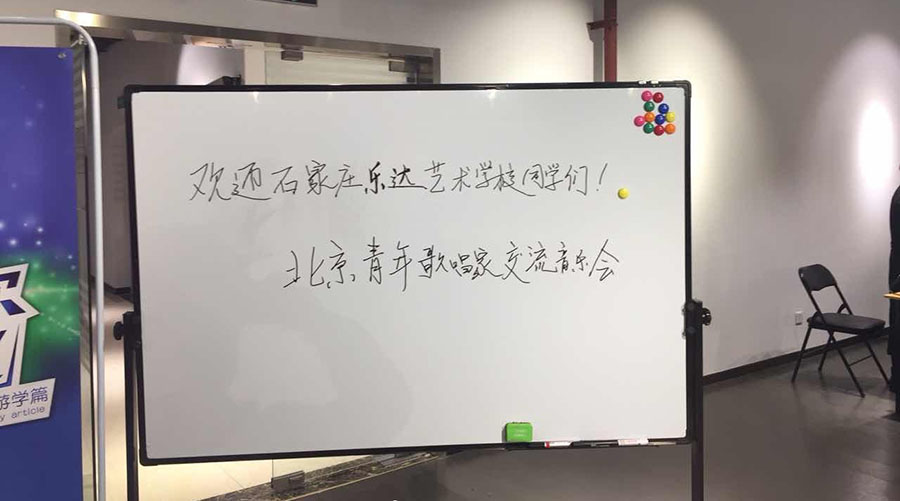 欢迎石家庄乐达艺术学校同学们!
北京青年歌唱家交流音乐会
游学篇
y article